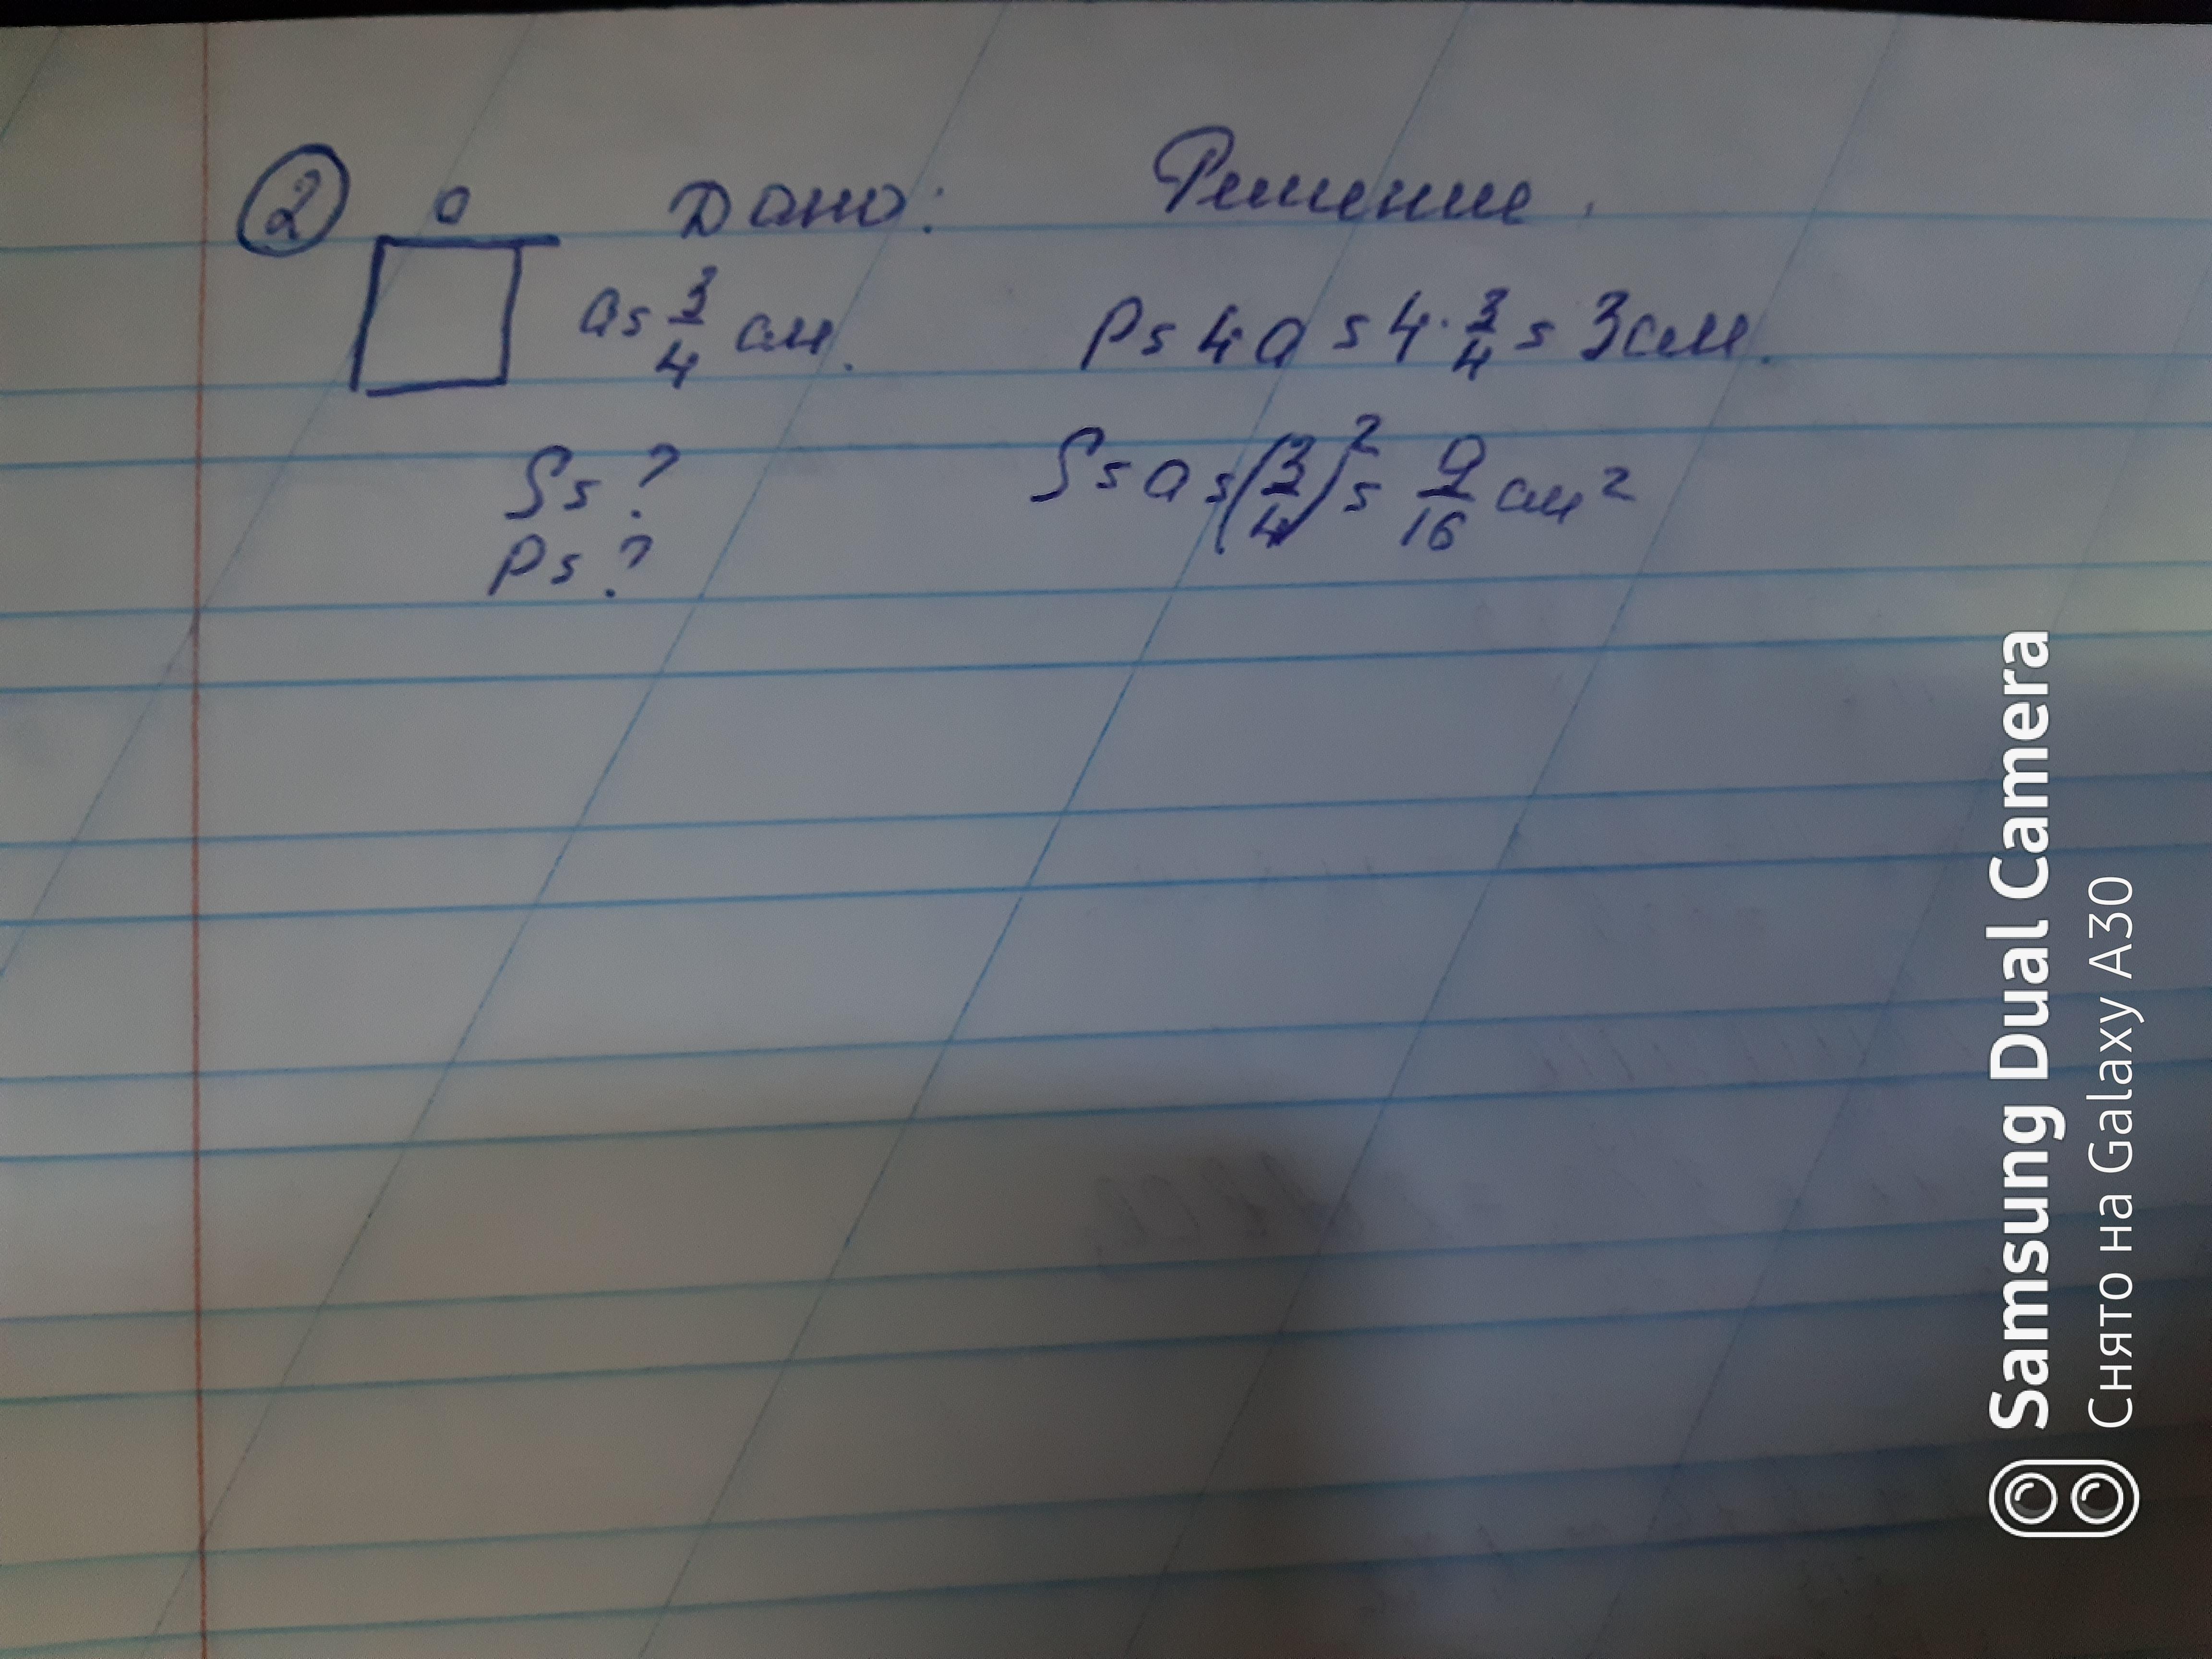 ② a Дано: Решение.
a = 3/4 см. P = 4a = 4 · 3/4 = 3 см.
S = ? S = a = (3/4)² = 9/16 см²
P = ?
Samsung Dual Camera
Снято на Galaxy A30